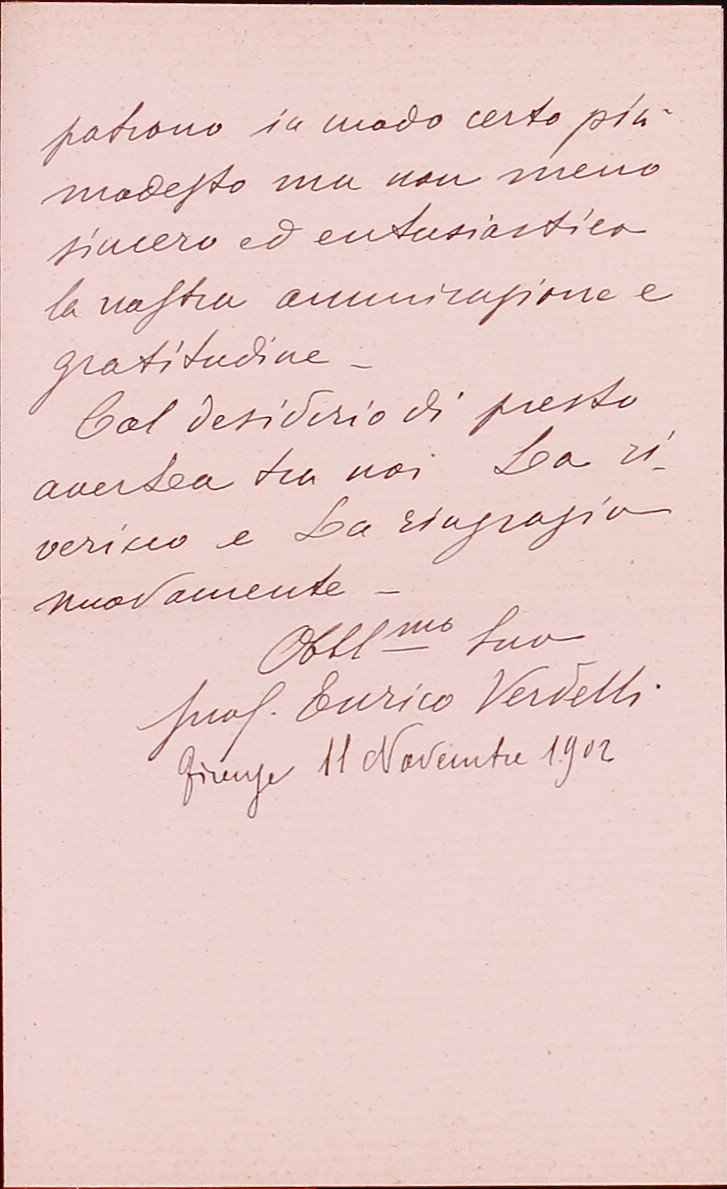 patrono in modo certo più
modesto ma non meno
sincero ed entusiastico
la nostra ammirazione e
gratitudine –
Col desiderio di presto
averLea tra noi La ri-
verisco e La ringrazio
nuovamente –
Obbl.mo Suo
prof. Enrico Verdelli.
Firenze 11 Novembre 1902